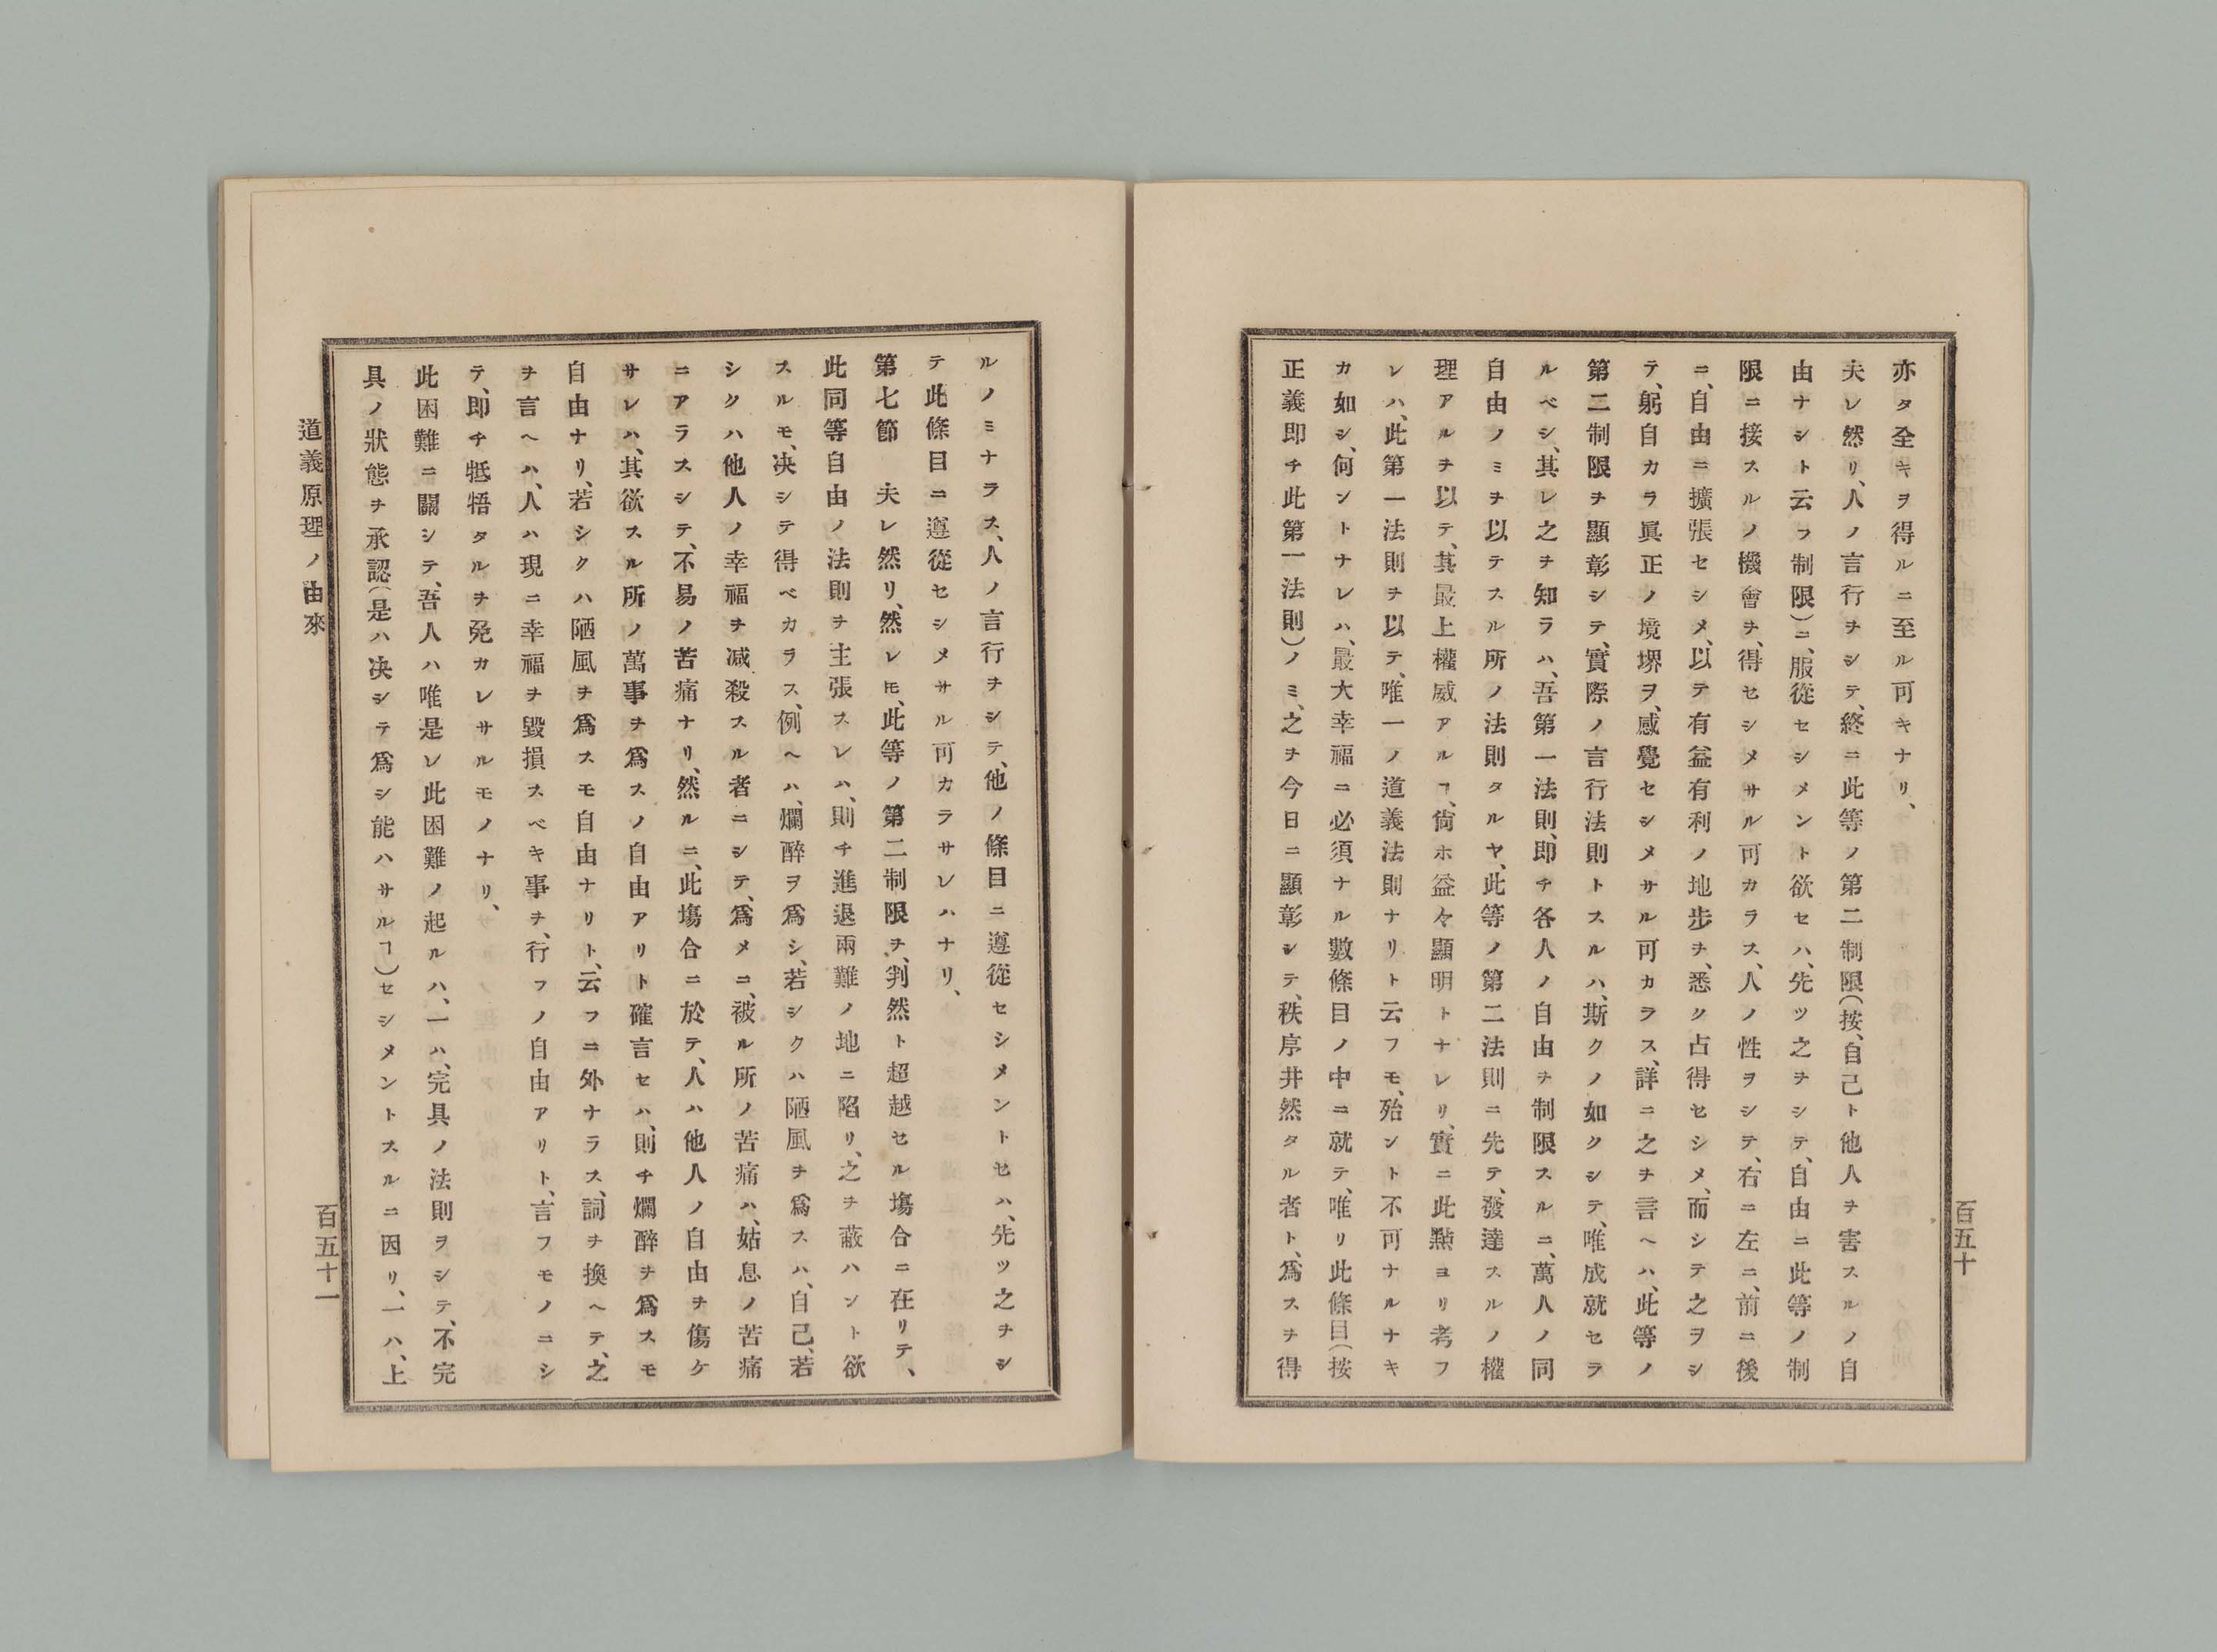 亦タ全キヲ得ルニ至ル可キナリ、
夫レ然リ、人ノ言行ヲシテ、終ニ此等ノ第二制限（按、自己ト他人ヲ害スルノ自
由ナシト云フ制限）ニ、服從セシメント欲セハ、先ツ之ヲシテ、自由ニ此等ノ制
限ニ接スルノ機會ヲ、得セシメサル可カラス、人ノ性ヲシテ、右ニ左ニ、前ニ後
ニ、自由ニ擴張セシメ、以テ有益有利ノ地步ヲ、悉ク占得セシメ、而シテ之ヲシ
テ、躬自カラ眞正ノ境堺ヲ、感覺セシメサル可カラス、詳ニ之ヲ言ヘハ、此等ノ
第二制限ヲ顯彰シテ、實際ノ言行法則トスルハ、斯クノ如クシテ、唯成就セラ
ルベシ、其レ之ヲ知ラハ、吾第一法則、即チ各人ノ自由ヲ制限スルニ、萬人ノ同
自由ノミヲ以テスル所ノ法則タルヤ、此等ノ第二法則ニ先テ、發達スルノ權
理アルヲ以テ、其最上權威アルヿ、尙ホ益々顯明トナレリ、實ニ此點ヨリ考フ
レハ、此第一法則ヲ以テ、唯一ノ道義法則ナリト云フモ、殆ント不可ナルナキ
カ如シ、何ントナレハ、最大幸福ニ必須ナル數條目ノ中ニ就テ、唯リ此條目（按
正義即チ此第一法則）ノミ、之ヲ今日ニ顯彰シテ、秩序井然タル者ト、爲スヲ得
百五十
ルノミナラス、人ノ言行ヲシテ、他ノ條目ニ遵從セシメントセハ、先ツ之ヲシ
テ此條目ニ遵從セシメサル可カラサレハナリ、
第七節　夫レ然リ、然レㇳモ、此等ノ第二制限ヲ、判然ト超越セル塲合ニ在リテ、
此同等自由ノ法則ヲ主張スレハ、則チ進退兩難ノ地ニ陷リ、之ヲ蔽ハント欲
スルモ、决シテ得ベカラス、例ヘハ、爛醉ヲ爲シ、若シクハ陋風ヲ爲スハ、自己、若
シクハ他人ノ幸福ヲ减殺スル者ニシテ、爲メニ、被ル所ノ苦痛ハ、姑息ノ苦痛
ニアラスシテ、不易ノ苦痛ナリ、然ルニ、此塲合ニ於テ、人ハ他人ノ自由ヲ傷ケ
サレハ、其欲スル所ノ萬事ヲ爲スノ自由アリト確言セハ、則チ爛醉ヲ爲スモ
自由ナリ、若シクハ陋風ヲ爲スモ自由ナリト、云フニ外ナラス、詞ヲ換ヘテ、之
ヲ言ヘハ、人ハ現ニ幸福ヲ毀損スベキ事ヲ、行フノ自由アリト、言フモノニシ
テ、即チ牴悟タルヲ免カレサルモノナリ、
此困難ニ關シテ、吾人ハ唯是レ此困難ノ起ルハ、一ハ、完具ノ法則ヲシテ、不完
具ノ狀態ヲ承認（是ハ决シテ爲シ能ハサルヿ）セシメントスルニ因リ、一ハ、上
道義原理ノ由來
百五十一